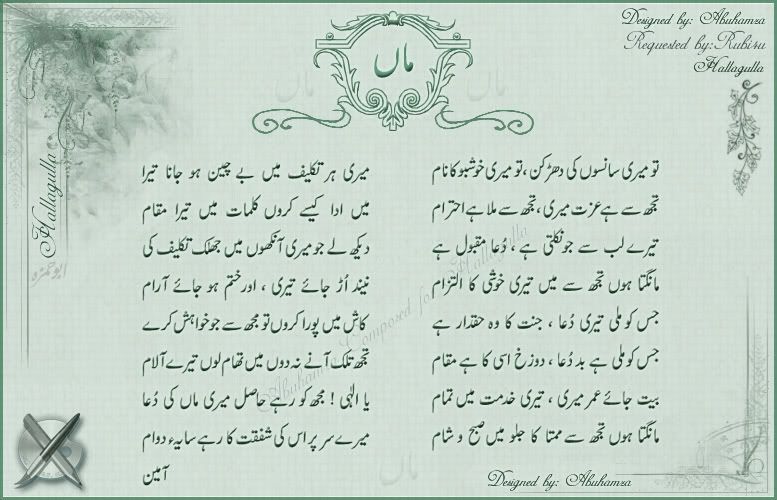 Designed by: Abuhamza
Requested by: Rubi4u
Hallagulla
ماں
تو میری سانسوں کی دھڑکن ، تو میری خوشبو کا نام
تجھ سے ہے عزت میری ، تجھ سے ملا ہے احترام
تیرے لب سے جو نکلتی ہے ، دُعا مقبول ہے
مانگتا ہوں تجھ سے میں تیری خوشی کا التزام
جس کو ملی تیری دُعا ، جنت کا وہ حقدار ہے
جس کو ملی ہے بد دُعا ، دوزخ اسی کا ہے مقام
بیت جائے عمر میری ، تیری خدمت میں تمام
مانگتا ہوں تجھ سے ممتا کا جلو میں صبح و شام
میری ہر تکلیف میں بے چین ہو جانا تیرا
میں ادا کیسے کروں کلمات میں تیرا مقام
دیکھ لے جو میری آنکھوں میں جھلک تکلیف کی
نیند اُڑ جائے تیری ، اور ختم ہو جائے آرام
کاش میں پورا کروں تو مجھ سے جو خواہش کرے
تجھ تلک آنے نہ دوں میں تھام لوں تیرے آلام
یا الٰہی ! مجھ کو رہے حاصل میری ماں کی دُعا
میرے سر پر اس کی شفقت کا رہے سایہء دوام
آمین
Hallagulla
ابوحمزہ
Abuhamza Composed for Hallagulla
Designed by: Abuhamza
ماں
ماں
ماں